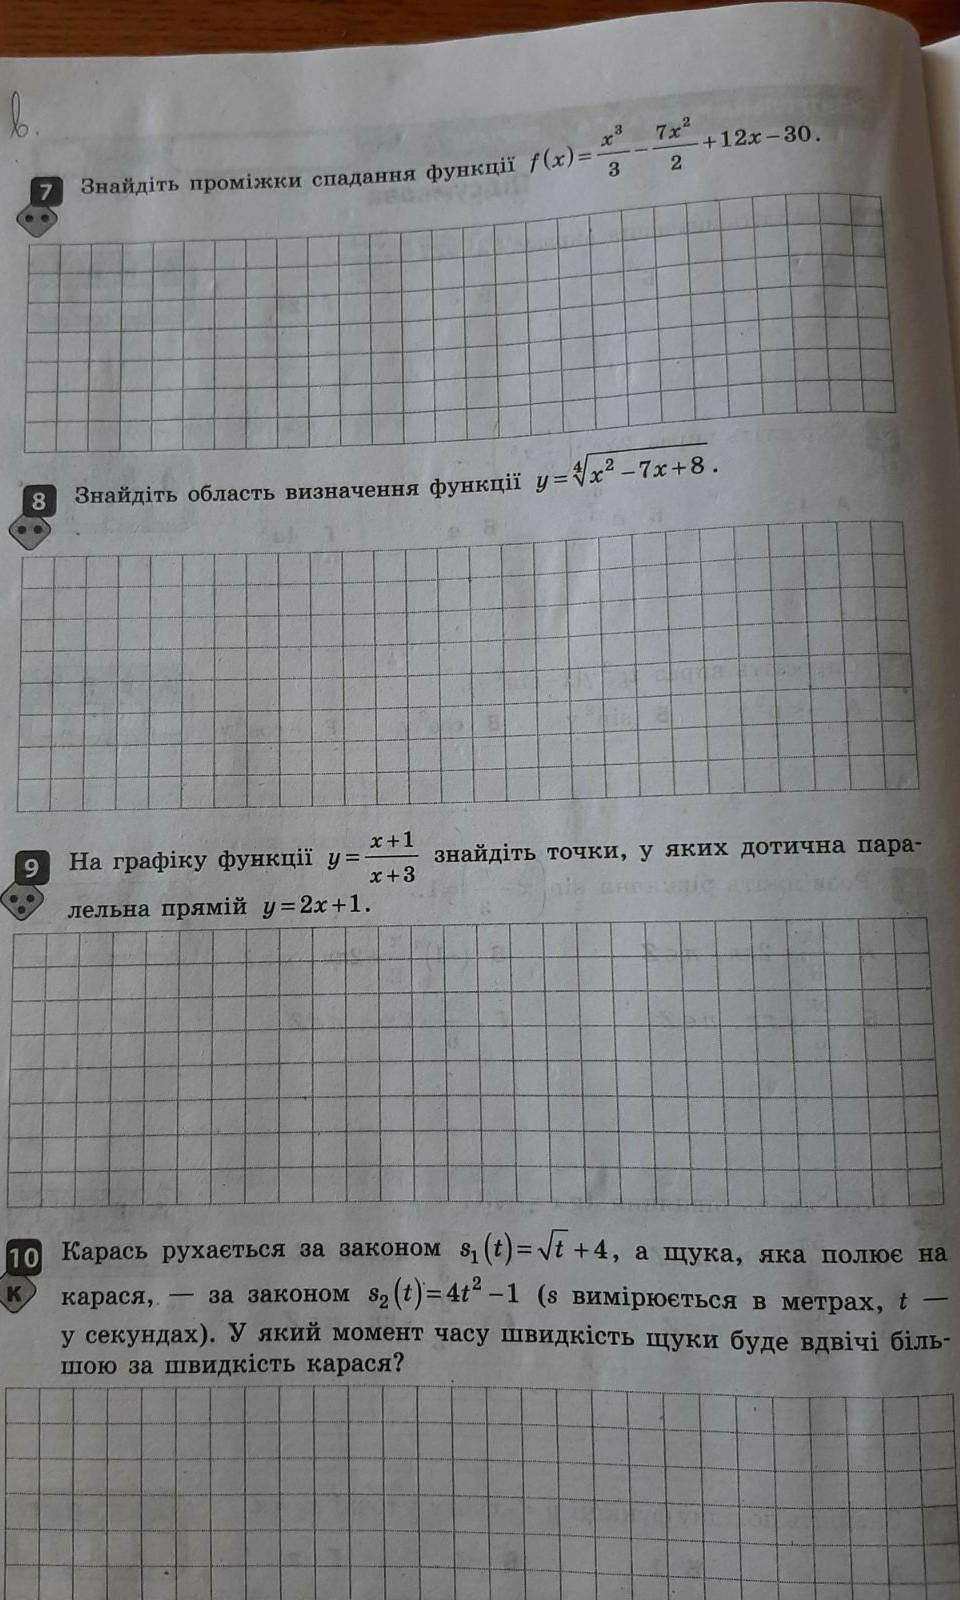 в.
7 Знайдіть проміжки спадання функції f(x)=x³/3−7x²/2+12x−30.
8 Знайдіть область визначення функції y=∜(x²−7x+8).
9 На графіку функції y=(x+1)/(x+3) знайдіть точки, у яких дотична пара-
лельна прямій y=2x+1.
10 Карась рухається за законом s₁(t)=√t+4, а щука, яка полює на
К карася, — за законом s₂(t)=4t²−1 (s вимірюється в метрах, t —
у секундах). У який момент часу швидкість щуки буде вдвічі біль-
шою за швидкість карася?